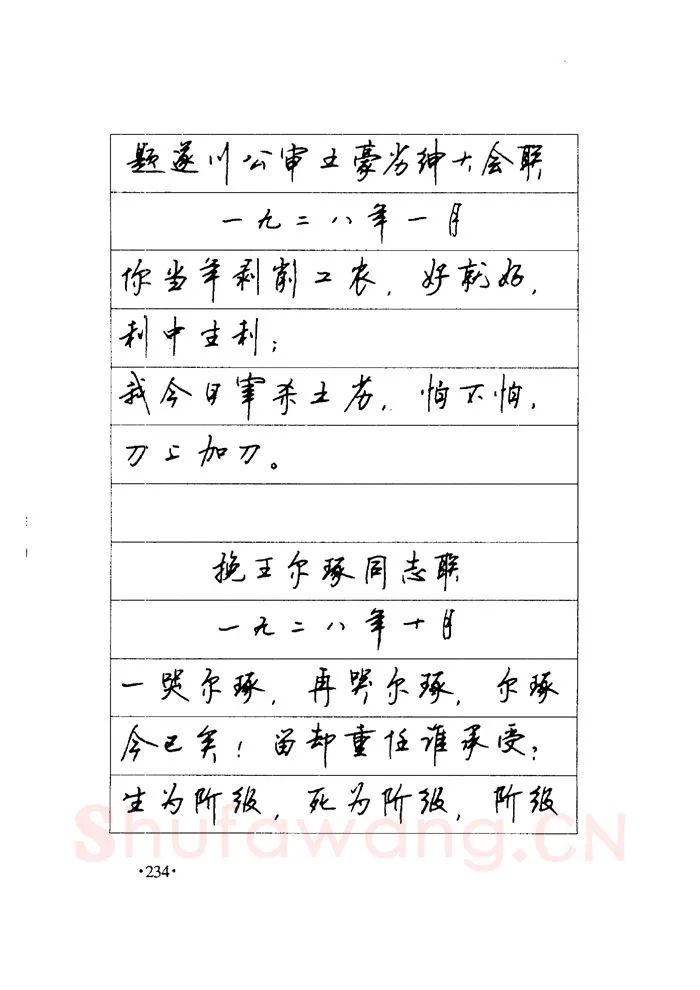 题遂川公审土豪劣绅大会联
一九二八年一月
你当年剥削工农，好就好，
利中生利；
我今日宰杀土劣，怕不怕，
刀上加刀。
挽王尔琢同志联
一九二八年十月
一哭尔琢，再哭尔琢，尔琢
今已矣！留却重任谁承受？
生为阶级，死为阶级，阶级
Shufawang.CN
·234·